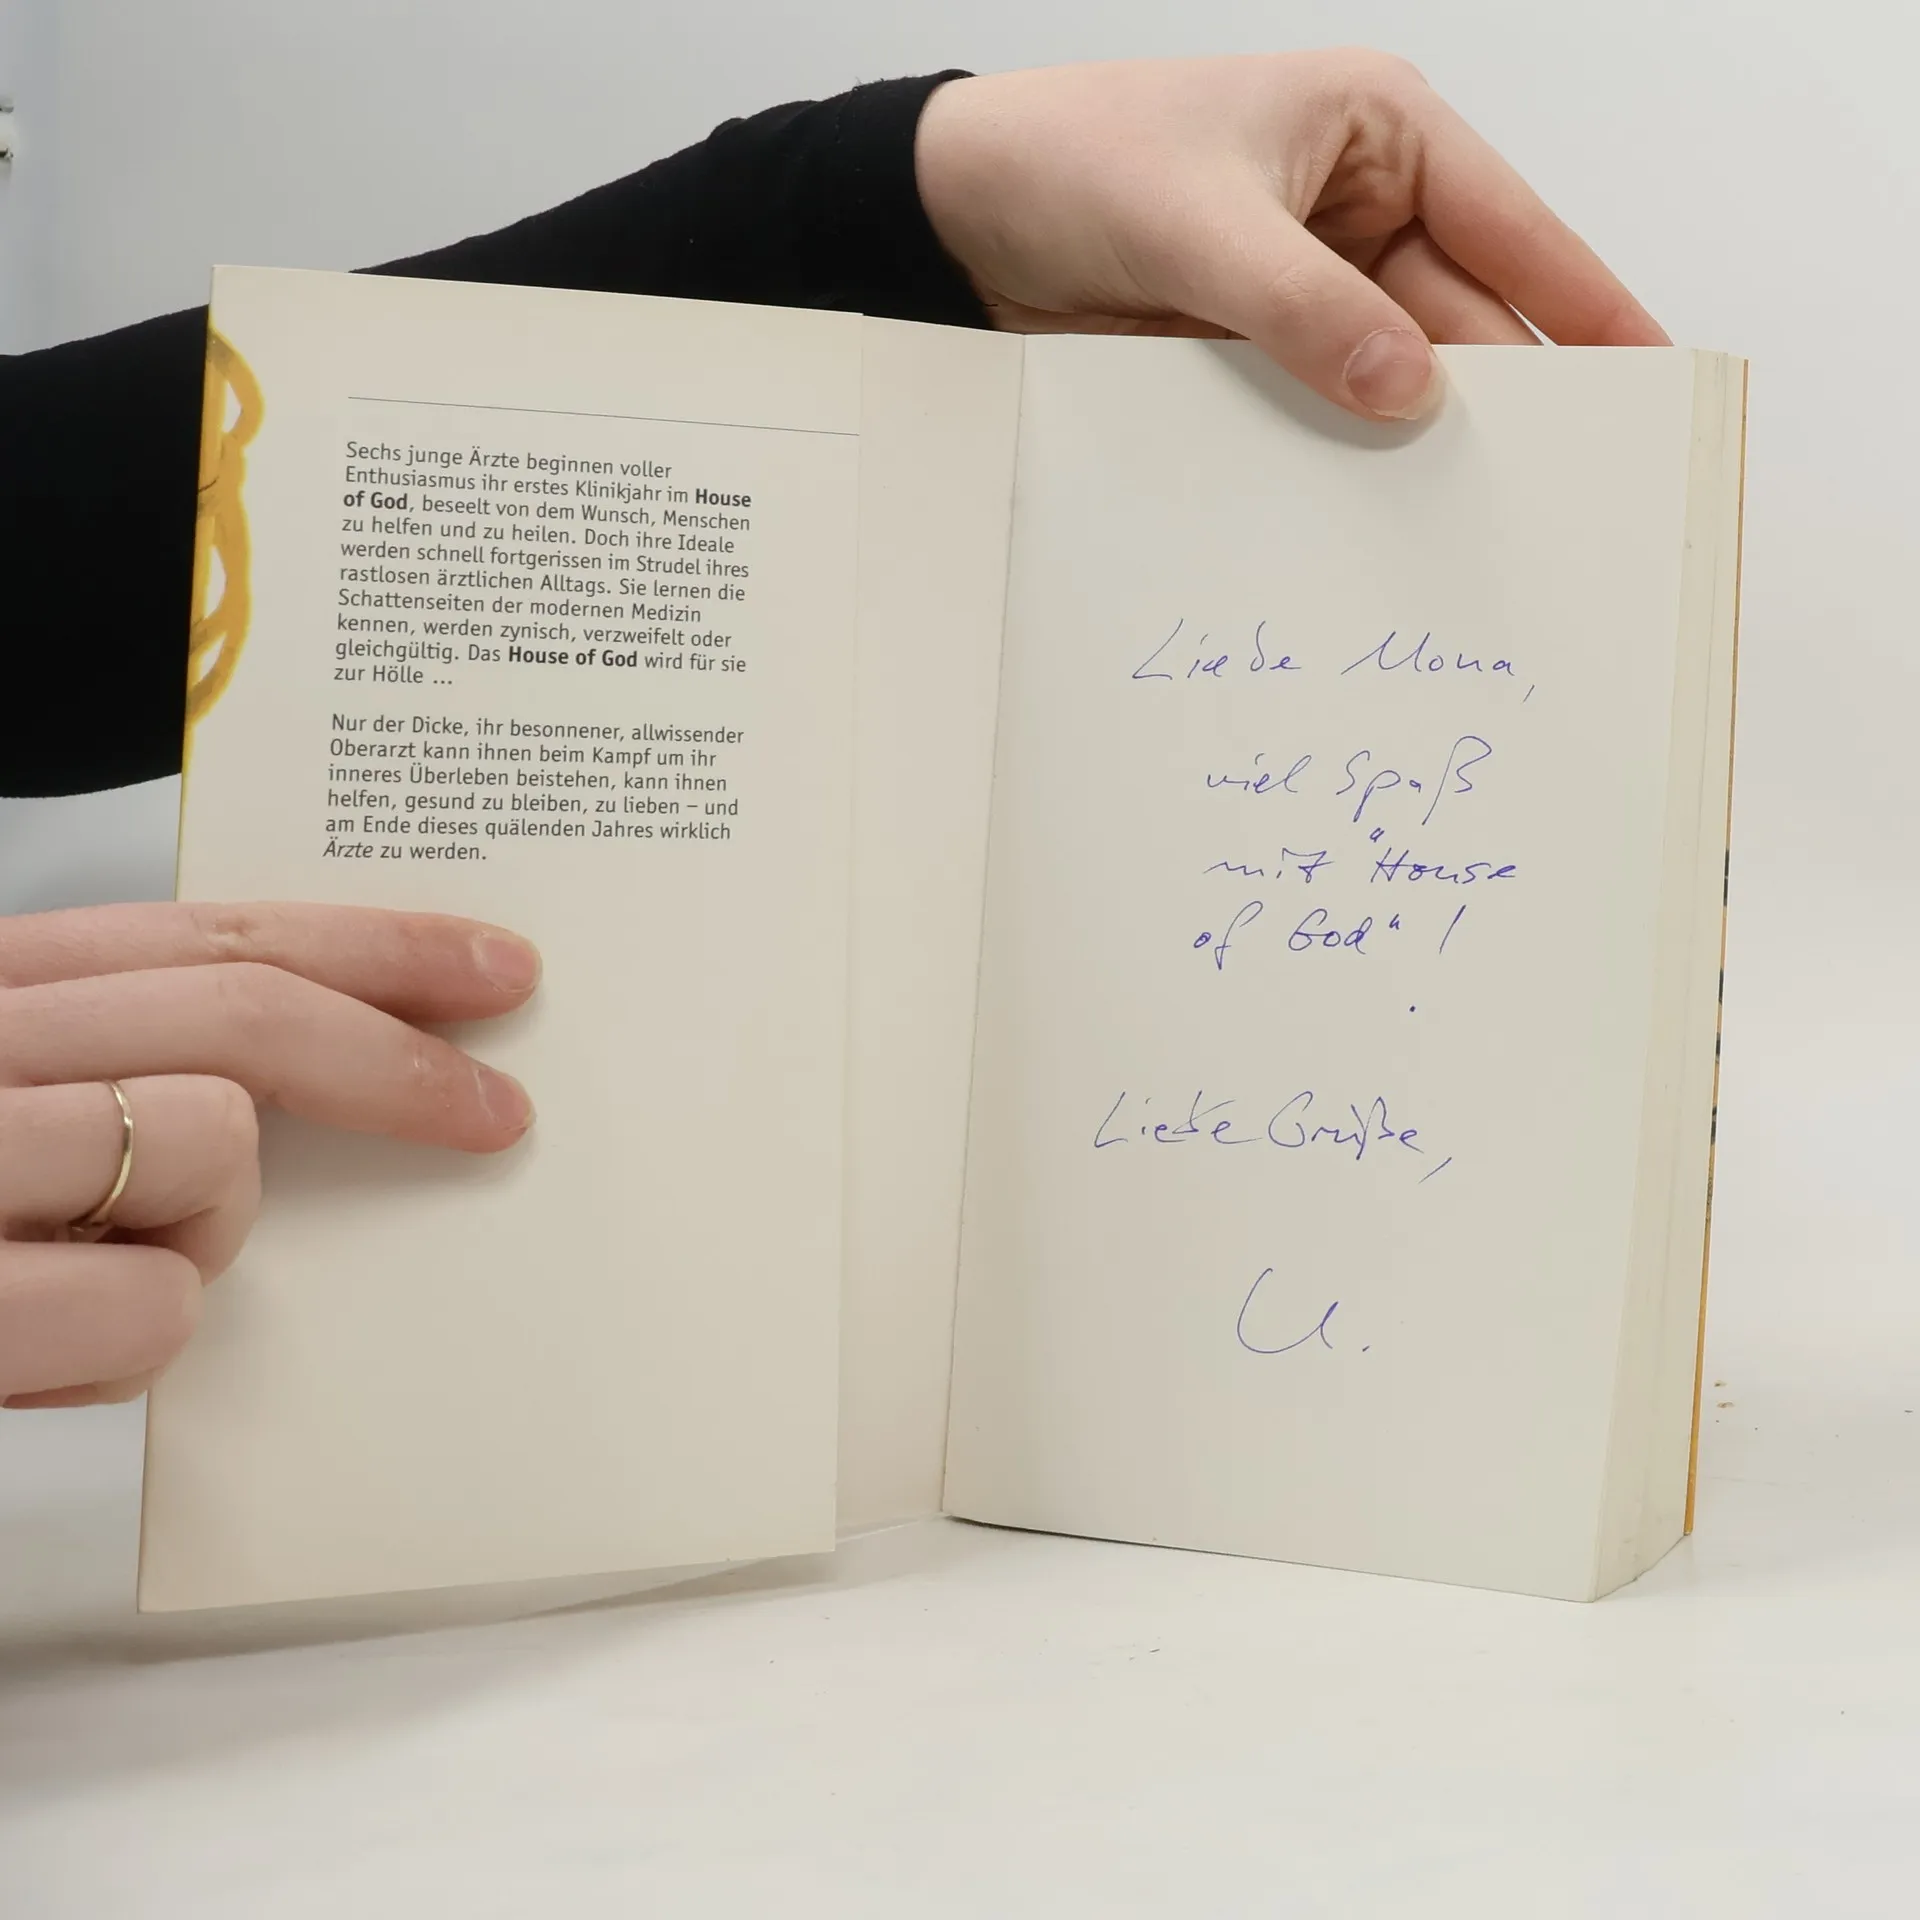 Sechs junge Ärzte beginnen voller
Enthusiasmus ihr erstes Klinikjahr im House
of God, beseelt von dem Wunsch, Menschen
zu helfen und zu heilen. Doch ihre Ideale
werden schnell fortgerissen im Strudel ihres
rastlosen ärztlichen Alltags. Sie lernen die
Schattenseiten der modernen Medizin
kennen, werden zynisch, verzweifelt oder
gleichgültig. Das House of God wird für sie
zur Hölle ...
Nur der Dicke, ihr besonnener, allwissender
Oberarzt kann ihnen beim Kampf um ihr
inneres Überleben beistehen, kann ihnen
helfen, gesund zu bleiben, zu lieben – und
am Ende dieses quälenden Jahres wirklich
Ärzte zu werden.
Liebe Mona,
viel Spaß
mit "House
of God"!
Liebe Grüße,
U.